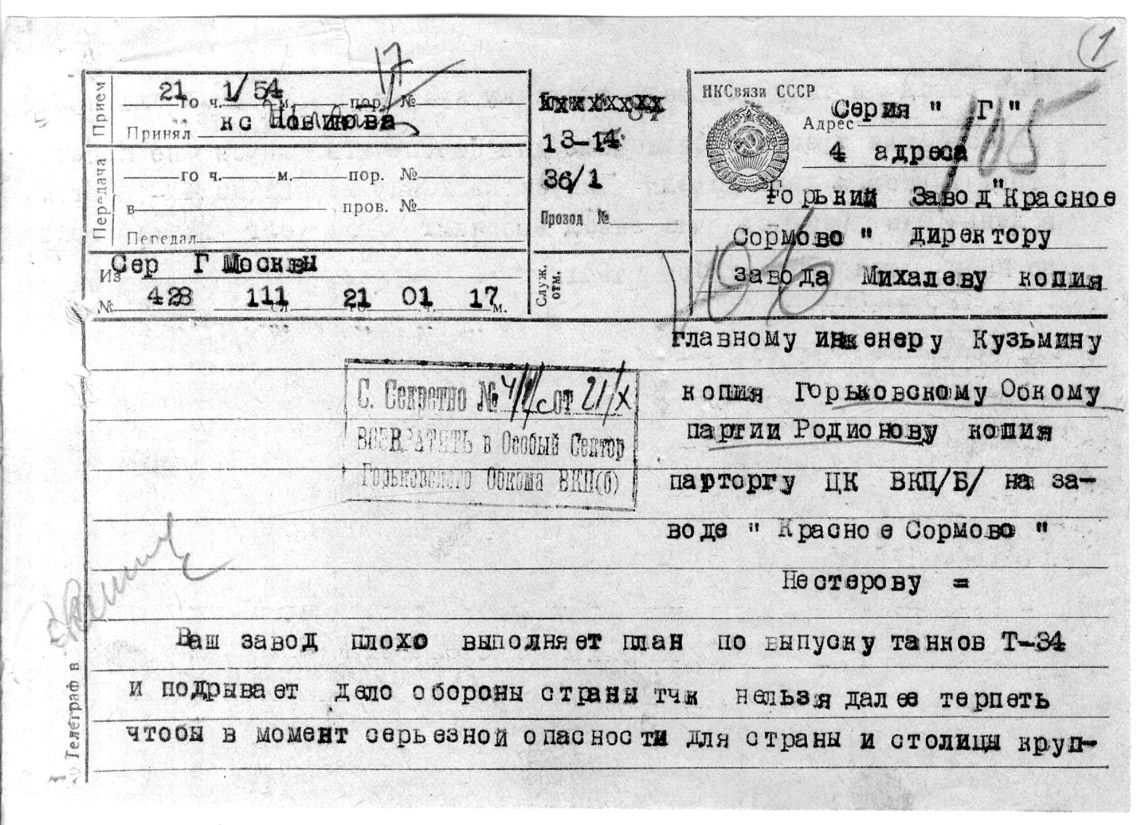 1
17
Прием
21 го ч. 1/54 м. пор. №
Принял кс Новикова
Передача
го ч. м. пор. №
в пров. №
Передал
13-14
36/1
Провод №
НКСвязи СССР
Серия " Г "
Адрес
4 адреса
Горький Завод "Красное
Сормово " директору
завода Михалеву копия
Из Сер Г Москвы
№ 428 111 сл. 21 го 01 ч. 17 м.
Служ. отм.
главному инженеру Кузьмину
копия Горьковскому Обкому
партии Родионову копия
парторгу ЦК ВКП/Б/ на за-
воде " Красное Сормово "
Нестерову =
С. Секретно № от 21/X
ВОЗВРАТИТЬ в Особый Сектор
Горьковского Обкома ВКП(б)
Ваш завод плохо выполняет план по выпуску танков Т-34
и подрывает дело обороны страны тчк нельзя далее терпеть
чтобы в момент серьезной опасности для страны и столицы круп-
Телеграф в